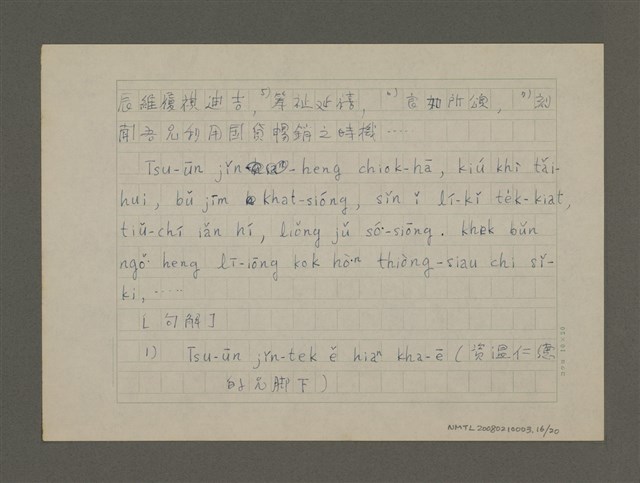 辰維履祺迪吉, 5) 筹祉延禧, 6) 言如所頌, 8) 刻
聞吾兄利用国貨暢銷之時機‥‥
Tsu-ūn jîn-heng chiok-hā, kiú khì tāi-
hui, bŭ jīm khat-sióng, sîn î lí-kî te̍k-kiat,
tiŭ-chí iân hí, liông jŭ só͘-siōng. khek bûn
ngô͘ heng lī-iōng kok hòⁿ thiòng-siau chi sî-
ki, ‥‥
[ 句解 ]
1) Tsu-ūn jîn-tek ê hiaⁿ kha-ē (資溫仁德
的兄脚下)
20×10=200
NMTL20080210003_16/20